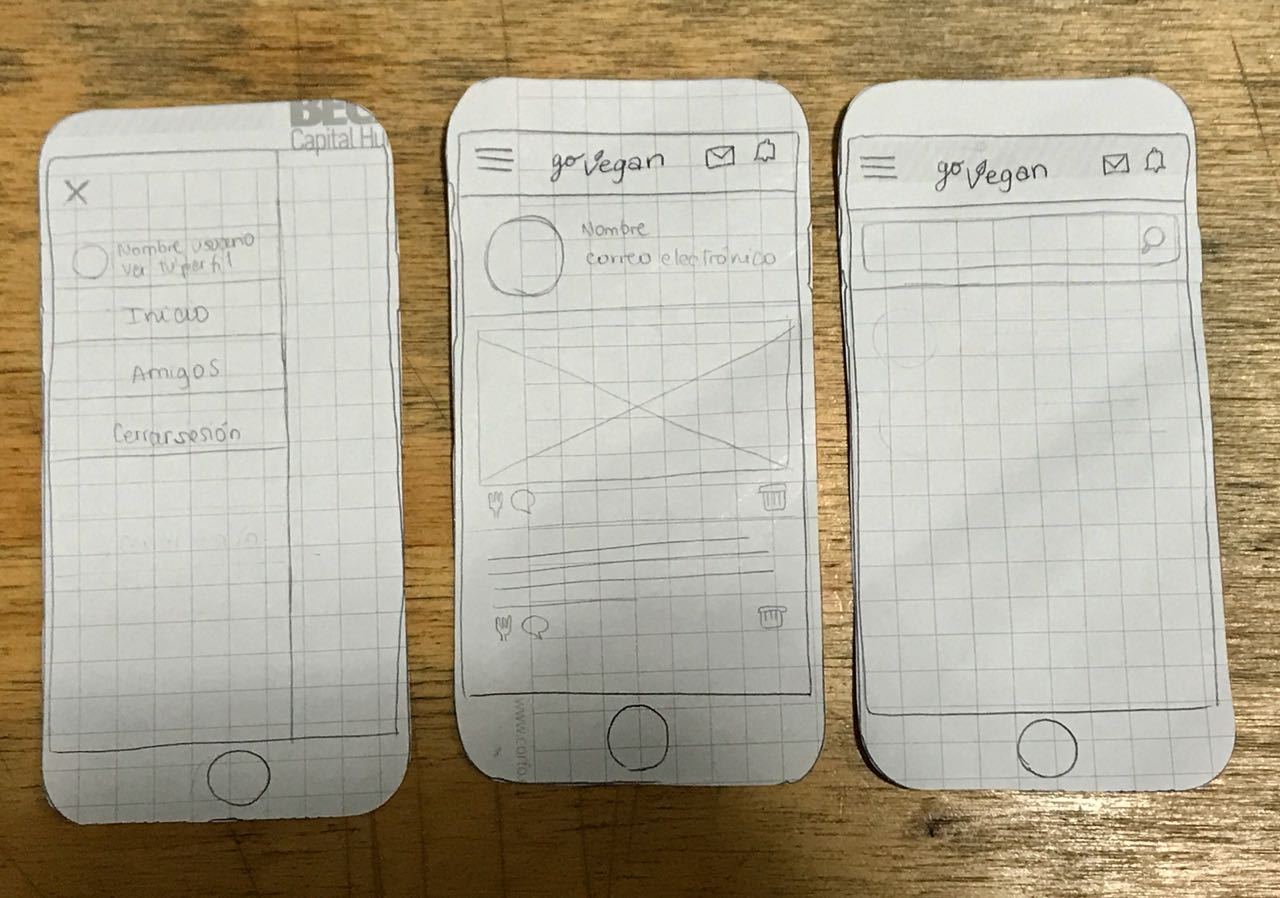 BEC
Capital Hu
X
Nombre usuario
ver tu perfil
Inicio
Amigos
Cerrar sesión
go Vegan
Nombre
correo electrónico
go Vegan